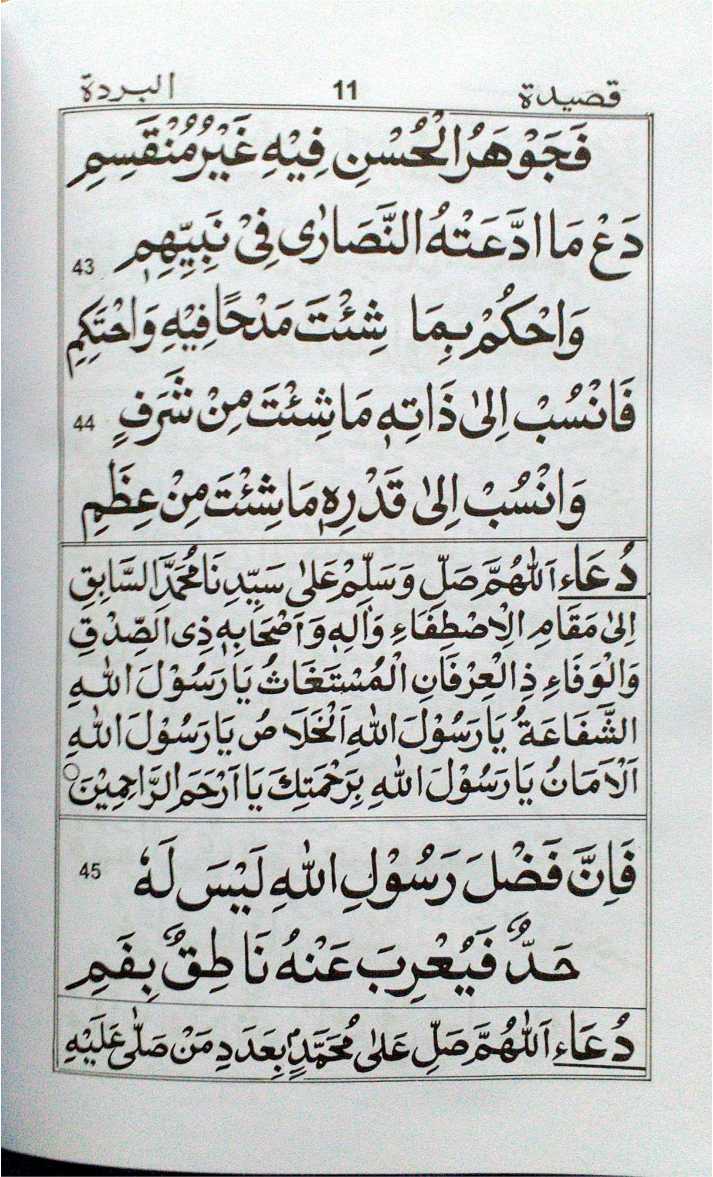 قصيدة 11 البردة
فَجَوْهَرُ الْحُسْنِ فِيْهِ غَيْرُ مُنْقَسِمِ
دَعْ مَا ادَّعَتْهُ النَّصَارٰى فِىْ نَبِيِّهِمٖ 43
وَاحْكُمْ بِمَا شِئْتَ مَدْحًا فِيْهِ وَاحْتَكِمِ
فَانْسُبْ اِلٰى ذَاتِهٖ مَا شِئْتَ مِنْ شَرَفٍ 44
وَانْسُبْ اِلٰى قَدْرِهٖ مَا شِئْتَ مِنْ عِظَمِ
دُعَاء اَللّٰهُمَّ صَلِّ وَسَلِّمْ عَلٰى سَيِّدِنَا مُحَمَّدَ السَّابِقِ
اِلٰى مَقَامِ الْاِصْطِفَاءِ وَاٰلِهٖ وَاَصْحَابِهٖ ذِى الصِّدْقِ
وَالْوَفَاءِ ذِ الْعِرْفَانِ الْمُسْتَغَاثُ يَا رَسُوْلَ اللهِ
الشَّفَاعَةُ يَا رَسُوْلَ اللهِ اَلْخَلَاصُ يَا رَسُوْلَ اللهِ
اَلْاَمَانُ يَا رَسُوْلَ اللهِ بِرَحْمَتِكَ يَا اَرْحَمَ الرَّاحِمِيْنَ○
فَاِنَّ فَضْلَ رَسُوْلِ اللهِ لَيْسَ لَهٗ 45
حَدٌّ فَيُعْرِبَ عَنْهُ نَاطِقٌ بِفَمِ
دُعَاء اَللّٰهُمَّ صَلِّ عَلٰى مُحَمَّدٍ بِعَدَدِ مَنْ صَلّٰى عَلَيْهِ